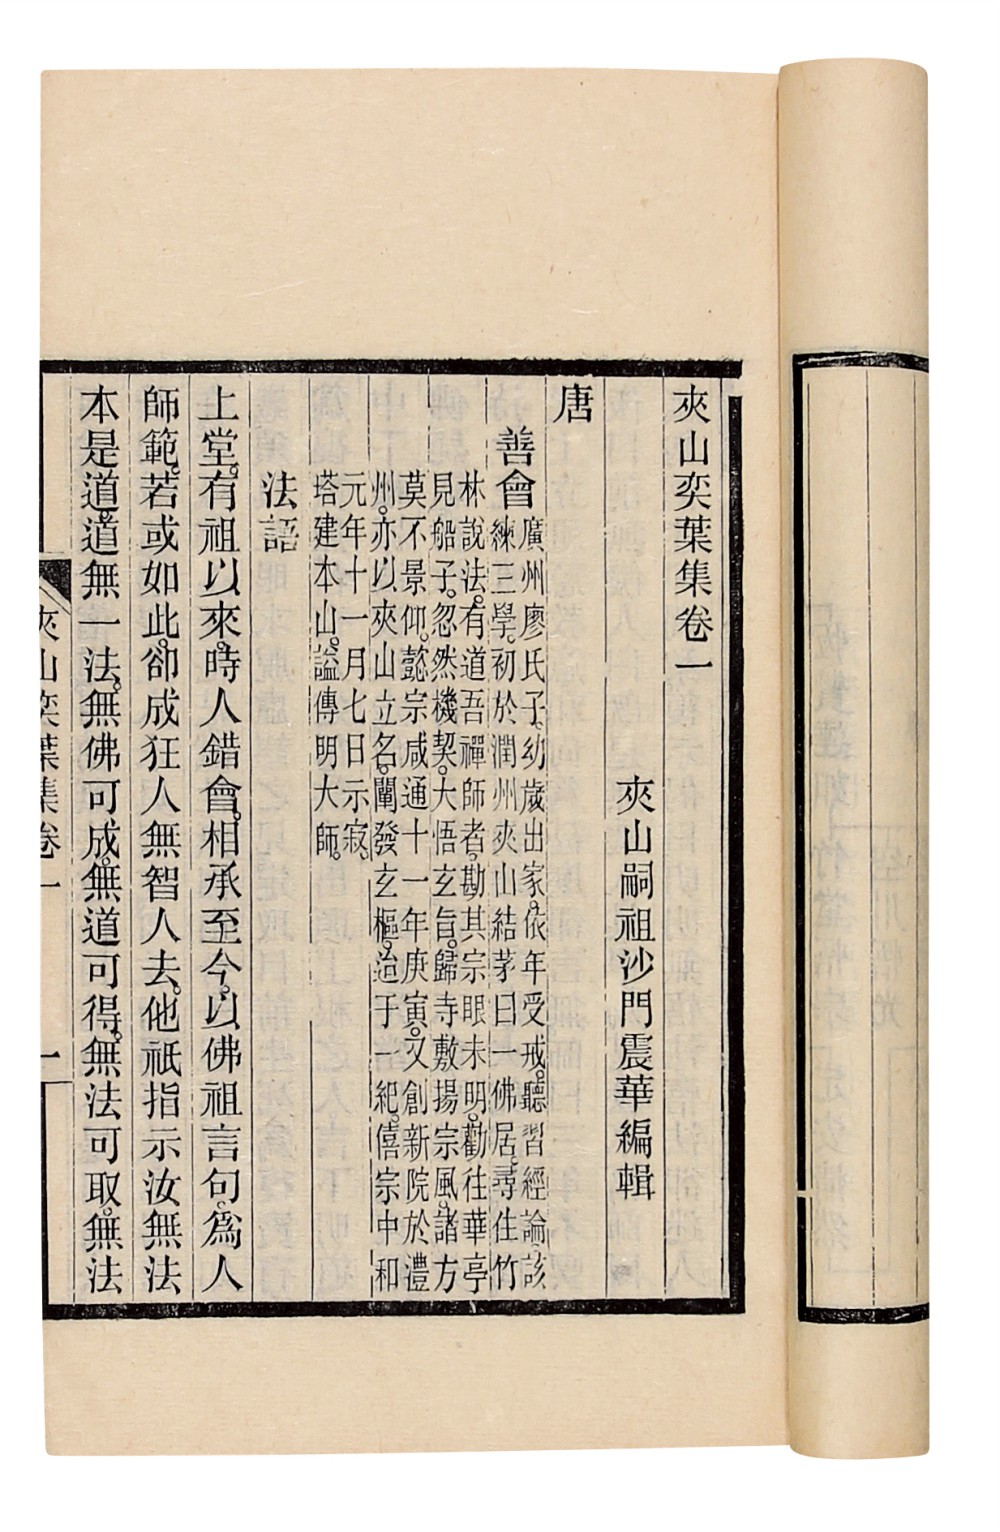 夾山奕葉集卷一
夾山嗣祖沙門震華編輯
唐
善會
廣州廖氏子。幼歲出家。依年受戒。聽習經論。該
練三學。初於潤州夾山結茅曰一佛居。尋住竹
林說法。有道吾禪師者。勘其宗眼未明。勸往華亭
見船子。忽然機契。大悟玄旨。歸寺敷揚宗風。諸方
莫不景仰。懿宗咸通十一年庚寅。又創新院於澧
州。亦以夾山立名。闡發玄樞。迨于一紀。僖宗中和
元年十一月七日示寂。
塔建本山。謚傳明大師。
法語
上堂。有祖以來。時人錯會。相承至今。以佛祖言句。爲人
師範。若或如此。卻成狂人無智人去。他祇指示汝無法
本是道。道無一法。無佛可成。無道可得。無法可取。無法
夾山奕葉集卷一
一